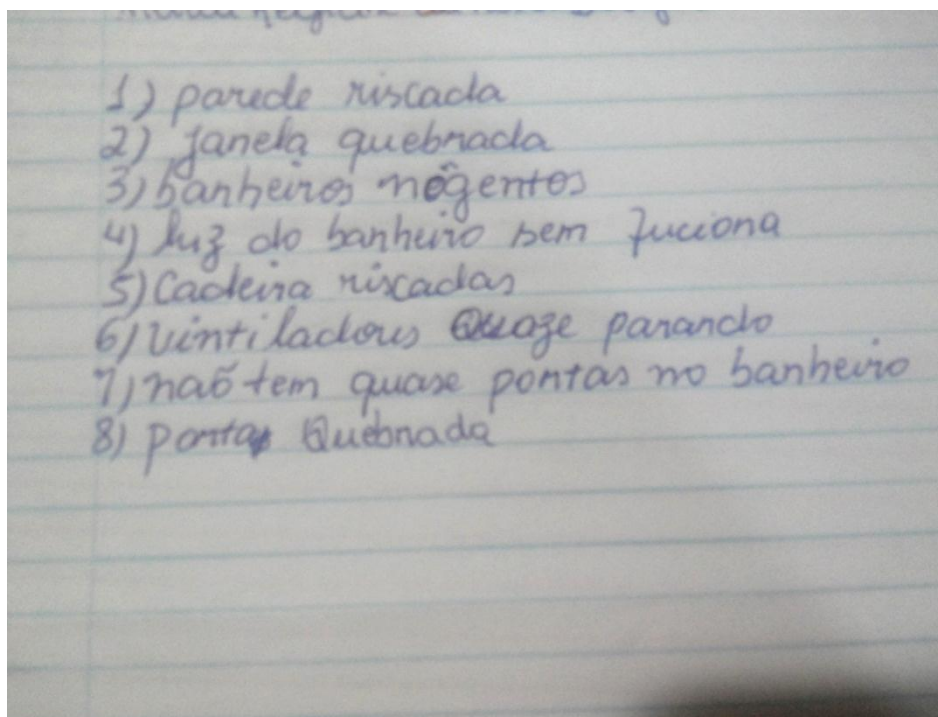 1) parede riscada
2) janela quebrada
3) banheiros nôgentos
4) luz do banheiro sem fuciona
5) Cadeira riscadas
6) Vintiladores Quaze parando
7) naõ tem quase portas no banheiro
8) porta Quebrada